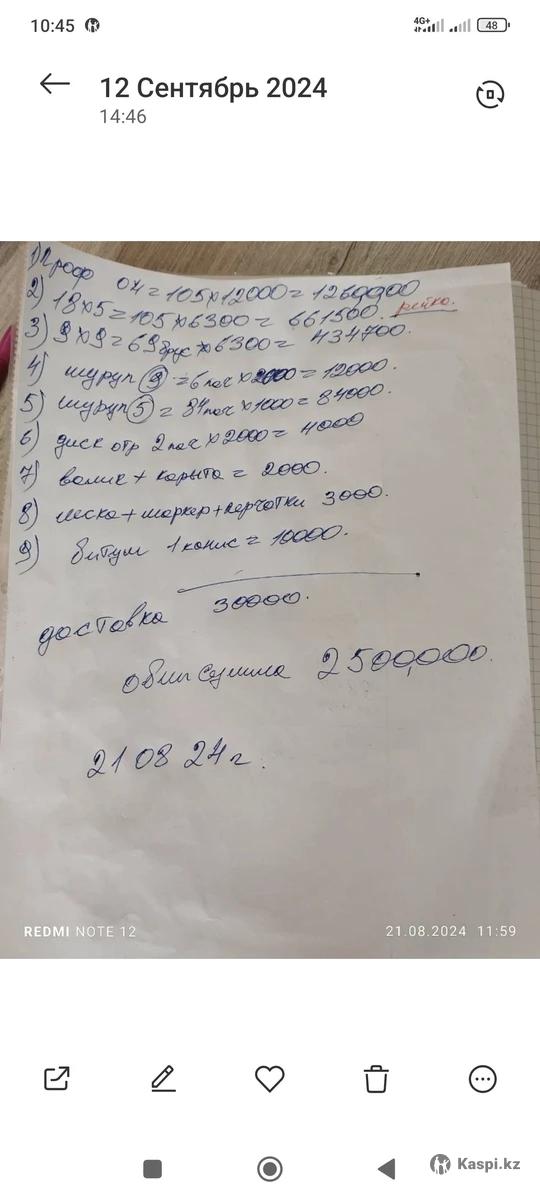 10:45
4G+
48
12 Сентябрь 2024
14:46
1) Проф 04 = 105 x 12000 = 1260,000
2) 18x5 = 105 x 6300 = 661500. рейка.
3) 9x9 = 69 брус x 6300 = 434700.
4) шуруп 9 = 6 пач x 2000 = 12000.
5) шуруп 5 = 84 пач x 1000 = 84000.
6) диск отр 2 пач x 2000 = 4000
7) валик + карыта = 2000.
8) леска + маркер + перчотки 3000.
9) битум 1 канис = 10000.
доставка 30000.
общ сумма 2500,000.
21 08 24 г.
REDMI NOTE 12
21.08.2024 11:59
Kaspi.kz